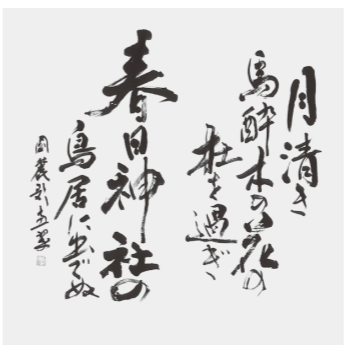 月清き
馬酔木の花の
杜を過ぎ
春日神社の
鳥居に出でぬ